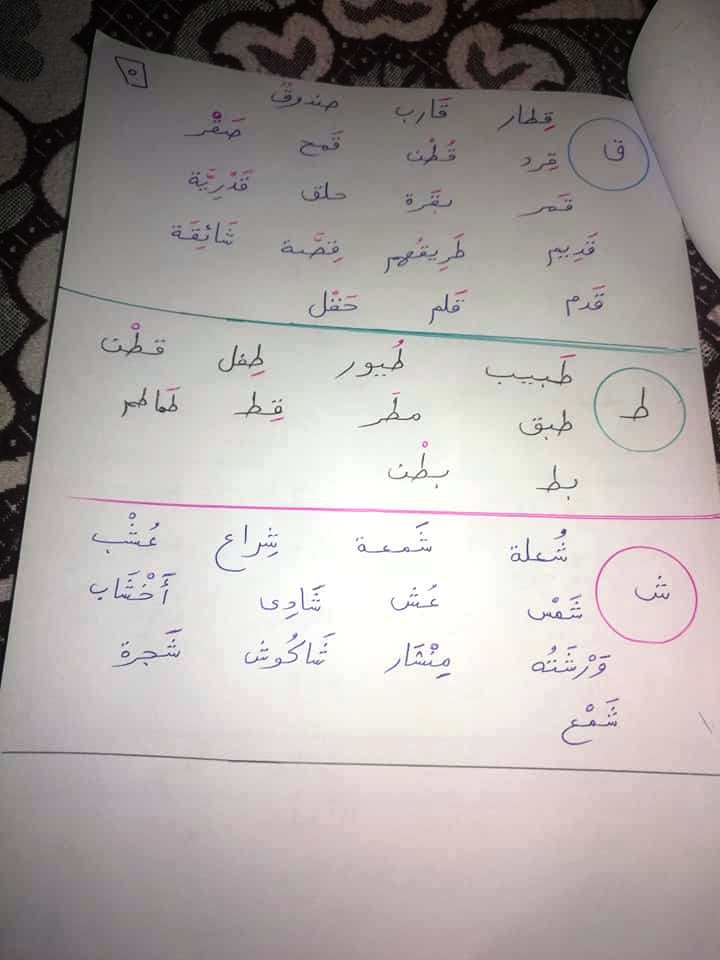 ٥
ق
قِطار قَارب صندوق
قِرد قُطْن قَمح صَقْر
قَمر بقَرة حلق
قَدِيم طَرِيقهم قِصَّة شَائِقَة
قَدم قَلم حَقْل
ط
طَبيب طُيور طِفل قطْن
طبق مطَر قِط طَماطم
بط بطْن
ش
شُعلة شَمعة شِراع عُشْب
شَمْس عُش شَادِى أَخْشَاب
وَرْشَتُه مِنْشَار شَاكُوش شَجرة
شَمْع